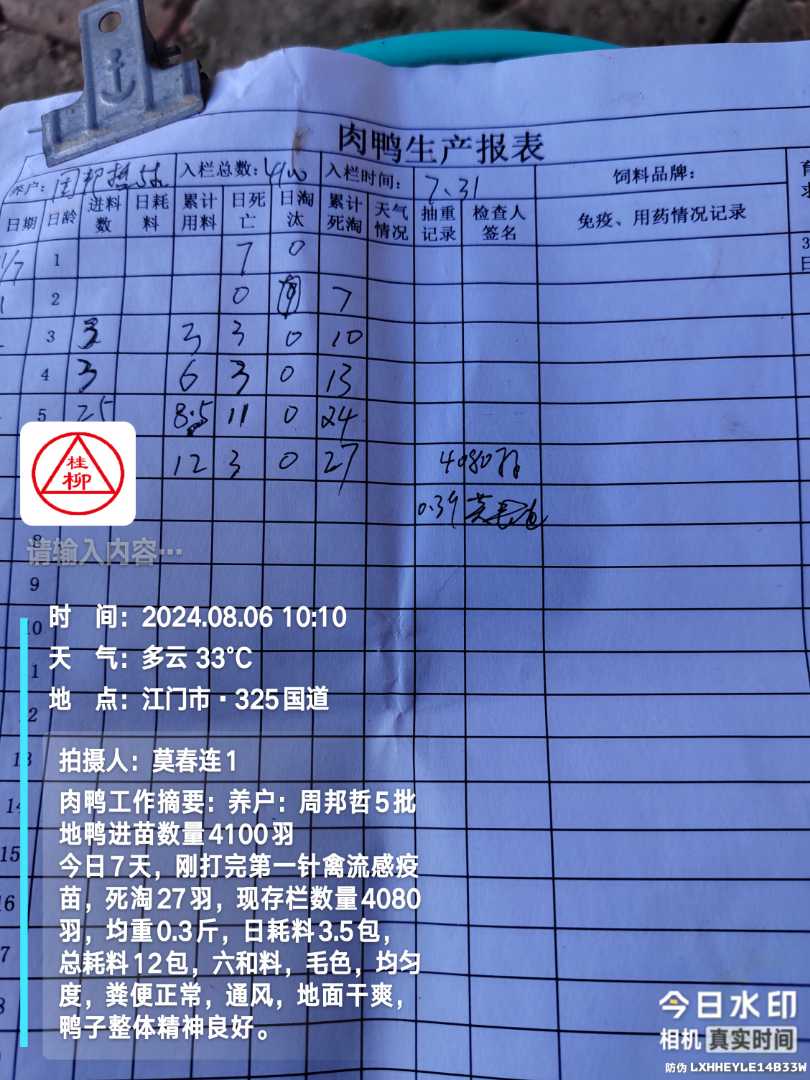 肉鸭生产报表
养户：周邦哲5批 入栏总数：4100 入栏时间：7.31 饲料品牌：
日期 日龄 进料数 日耗料 累计用料 日死亡 日淘汰 累计死淘 天气情况 抽重记录 检查人签名 免疫、用药情况记录
1 7 0
2 0 7
3 3 3 3 0 10
4 3 6 3 0 13
5 25 8.5 11 0 24
12 3 0 27 4080羽
0.39
8
9
10
桂柳
请输入内容…
时 间：2024.08.06 10:10
天 气：多云 33℃
地 点：江门市·325国道
拍摄人：莫春连1
肉鸭工作摘要：养户：周邦哲5批
地鸭进苗数量4100羽
今日7天，刚打完第一针禽流感疫
苗，死淘27羽，现存栏数量4080
羽，均重0.3斤，日耗料3.5包，
总耗料12包，六和料，毛色，均匀
度，粪便正常，通风，地面干爽，
鸭子整体精神良好。
15
今日水印
相机 真实时间
防伪 LXHHEYLE14B33W